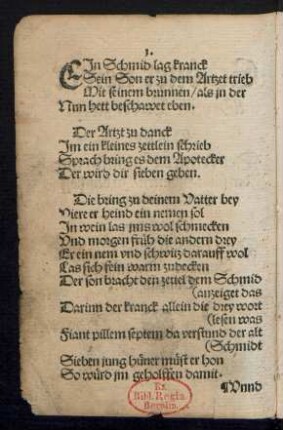 1.
EIn Schmid lag kranck
Sein Son er zu dem Artzet trieb
Mit seinem brunnen / als jn der
Nun hett beschawet eben.
Der Artzt zu danck
Im ein kleines zettlein schrieb
Sprach bring es dem Apotecker
Der wird dir sieben geben.
Die bring zu deinem Vatter bey
Viere er heind ein nemen sol
In wein las jms wol schmecken
Vnd morgen früh die andern drey
Er ein nem vnd schwitz darauff wol
Las sich fein warm zudecken
Der son bracht den zetel dem Schmid
(anzeiget das
Darinn der kranck allein die drey wort
(lesen was
Fiant pillem septem da verstund der alt
(Schmidt
Sieben jung hüner müst er hon
So würd jm geholffen damit.
Vnnd
Ex
Bibl. Regia
Berolin.